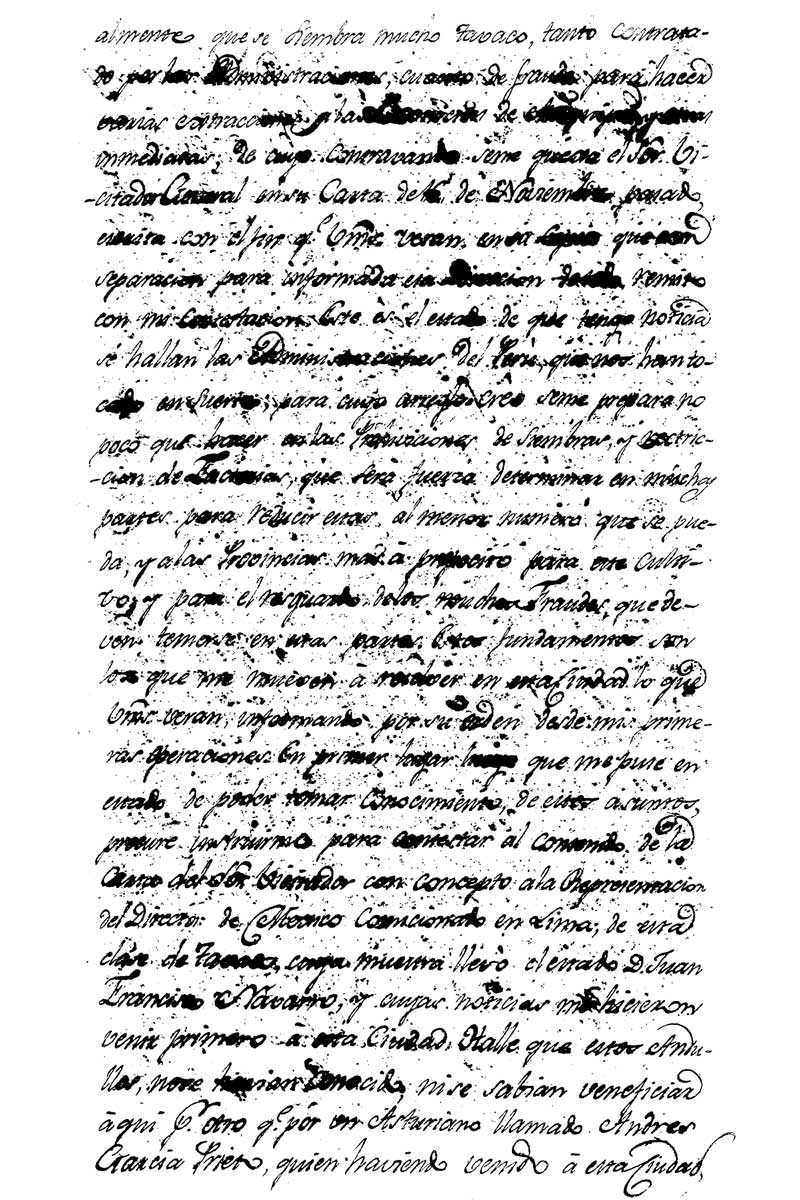 almente que se siembra mucho Tavaco, tanto contrata-
do por las Administraciones, cuanto de fraude para hacer
varias extracciones a las de
inmediatas, de cuyo Contravando seme quexa el Sõr. Vi-
-citador General en su Carta de 16, de Noviembre, pasad,
escrita con el fin q.e Vms. veran, en su Copia que con
separacion para informada esa Direccion de todo, remito
con mi Contestacion. Este es el estado de que tengo noticia
se hallan las Administraciones del Perù, que nos han to-
cado en Suerte, para cuyo arreglo creo seme prepara no
poco que hacer en las Provisiones de Siembras, y restric-
-cion de Factorias, que será fuerza determinar en muchas
partes para reducir estas, al menor numero que se pue-
da, y a las Provincias mas à proposito para este culti-
vo, y para el resguardo de los muchos Fraudes, que de-
ven temerse en estas partes. Estos fundamentos son
los que me mueven à resolver en esta Ciudad lo que
Vms. veran, informando por su orden desde mis prime-
ras operaciones. En primer lugar luego que me puse en
estado de poder tomar Conocimiento, de estos asuntos,
procure instruirme para contestar al Contenido de la
Carta del Sõr. Visitador con concepto a la Representacion
del Director de Mexico Comicionado en Lima, de esta
clase de Tavaco, cuya muestra llevò el citado D. Juan
Francisco Navarro, y cuyas noticias me hicieron
venir primero à esta Ciudad, Halle que estos Andu-
llos, no se havian conocido, ni se sabian veneficiar
à qui p.r otro q.e por un Asturiano llamado Andres
Garcia Prieto, quien haviendo venido à esta Ciudad,